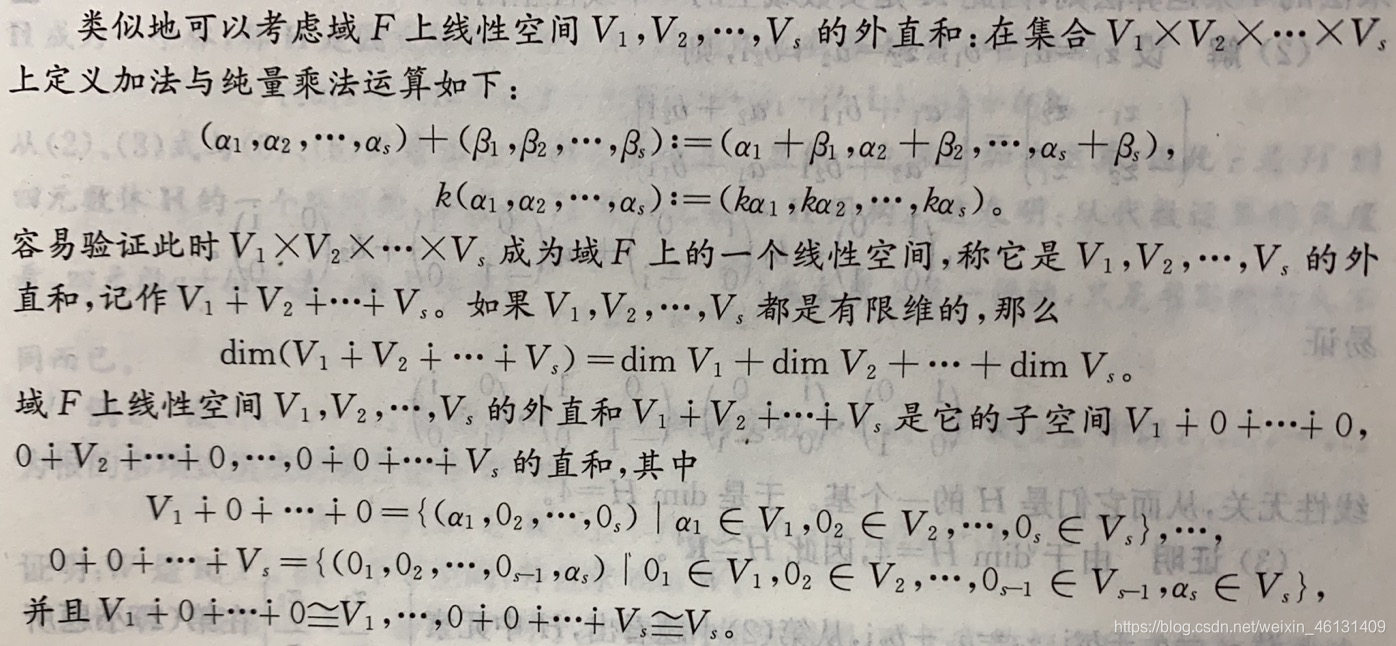 类似地可以考虑域 F 上线性空间 V₁,V₂,…,Vₛ 的外直和:在集合 V₁×V₂×…×Vₛ
上定义加法与纯量乘法运算如下:
(α₁,α₂,…,αₛ)+(β₁,β₂,…,βₛ):=(α₁+β₁,α₂+β₂,…,αₛ+βₛ),
k(α₁,α₂,…,αₛ):=(kα₁,kα₂,…,kαₛ)。
容易验证此时 V₁×V₂×…×Vₛ 成为域 F 上的一个线性空间,称它是 V₁,V₂,…,Vₛ 的外
直和,记作 V₁∔V₂∔…∔Vₛ。如果 V₁,V₂,…,Vₛ 都是有限维的,那么
dim(V₁∔V₂∔…∔Vₛ)=dim V₁+dim V₂+…+dim Vₛ。
域 F 上线性空间 V₁,V₂,…,Vₛ 的外直和 V₁∔V₂∔…∔Vₛ 是它的子空间 V₁∔0∔…∔0,
0∔V₂∔…∔0,…,0∔0∔…∔Vₛ 的直和,其中
V₁∔0∔…∔0={(α₁,0₂,…,0ₛ)|α₁∈V₁,0₂∈V₂,…,0ₛ∈Vₛ},…,
0∔0∔…∔Vₛ={(0₁,0₂,…,0ₛ₋₁,αₛ)|0₁∈V₁,0₂∈V₂,…,0ₛ₋₁∈Vₛ₋₁,αₛ∈Vₛ},
并且 V₁∔0∔…∔0≅V₁,…,0∔0∔…∔Vₛ≅Vₛ。
https://blog.csdn.net/weixin_46131409